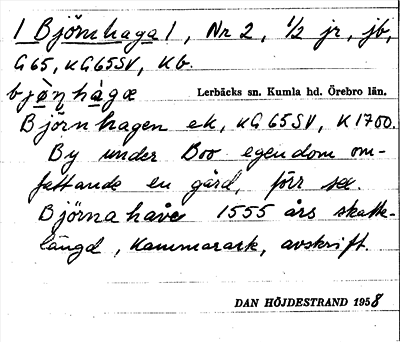 1 Björnhaga 1, Nr 2, ½ jr, jb,
G65, KG65SV, Kb.
bjø̀ṇhàgæ Lerbäcks sn. Kumla hd. Örebro län.
Björnhagen ek, KG65SV, K1700.
By under Boo egendom om-
fattande en gård, förr sex.
Björnahave 1555 års skatte-
längd, Kammarark, avskrift.
DAN HÖJDESTRAND 1958